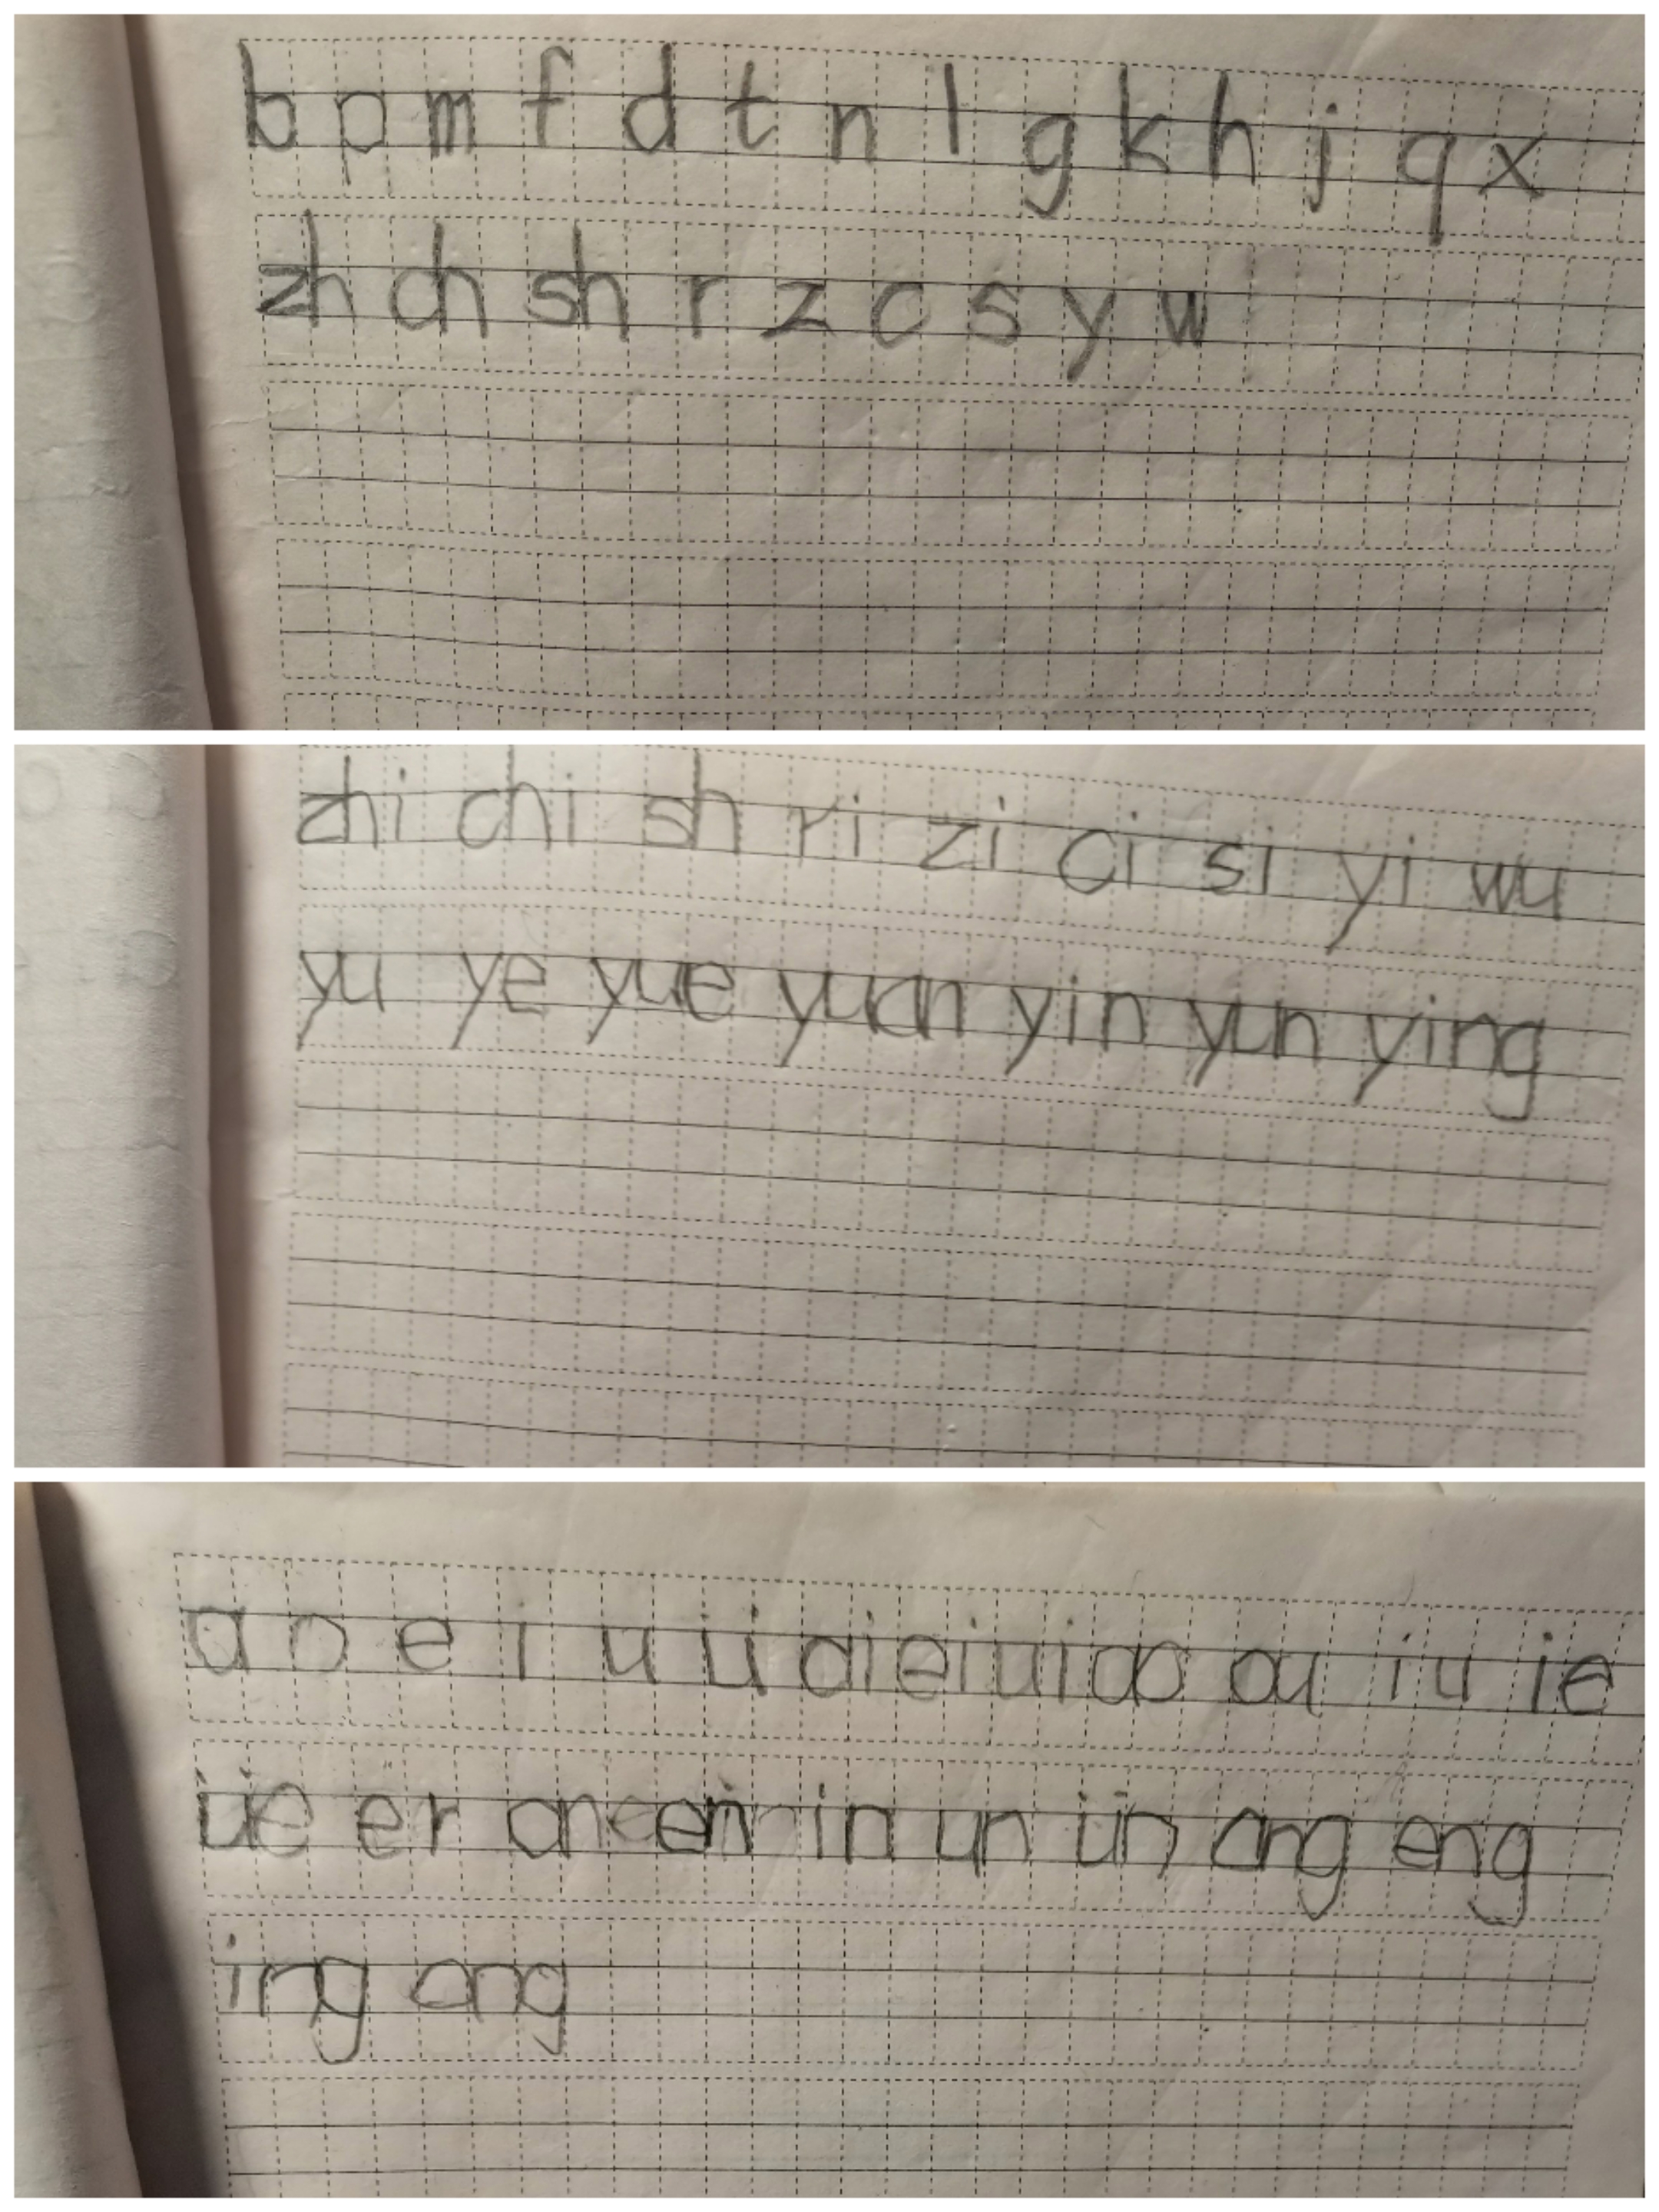 b p m f d t n l g k h j q x
zh ch sh r z c s y w
zhi chi sh ri zi ci si yi wu
yu ye yue yuan yin yun ying
a o e i u ü ai ei ui ao ou iu ie
üe er an en in un ün ang eng
ing ong